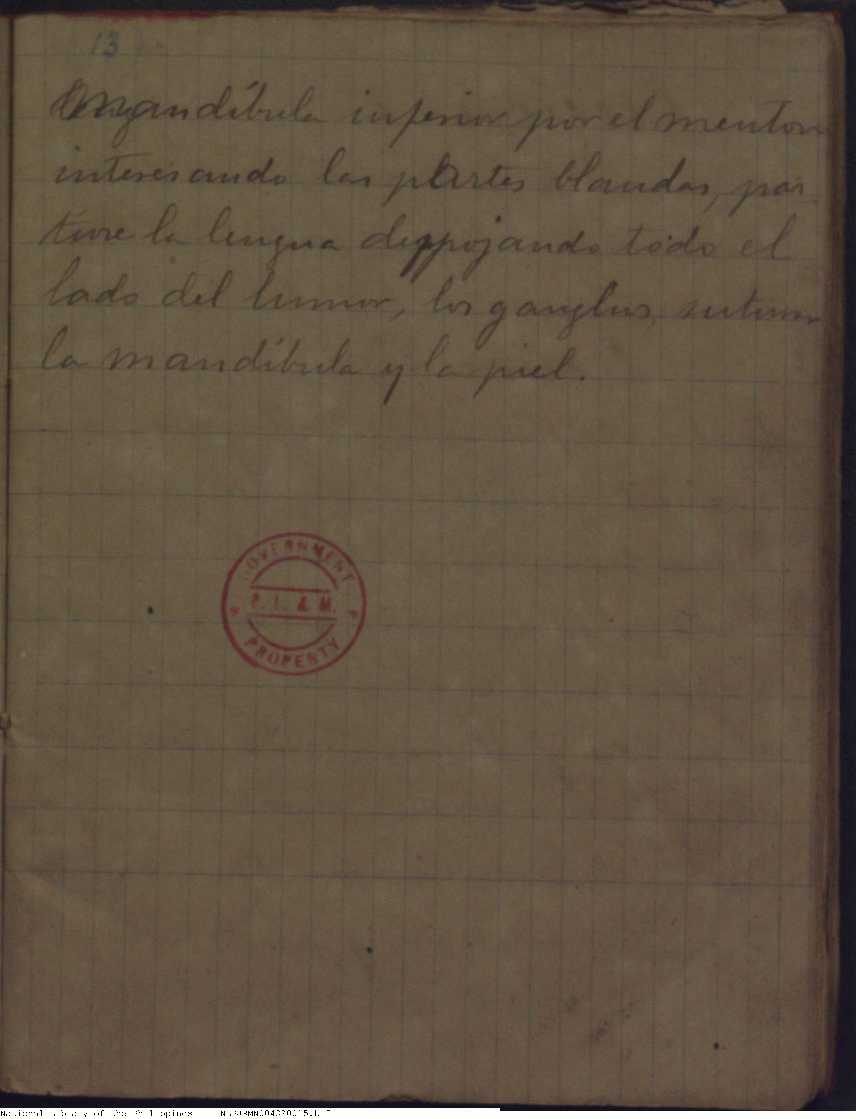 13
mandíbula inferior por el menton
interesando las partes blandas, par
la lengua despojando todo el
lado del tumor, los
la mandíbula y la piel.
GOVERNMENT
P. L. & M.
PROPERTY
National Library of the Philippines